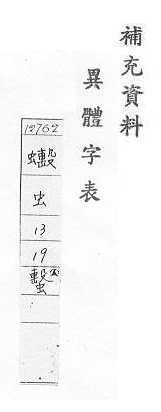 補充資料
異體字表
12762
虫
13
19
蟿